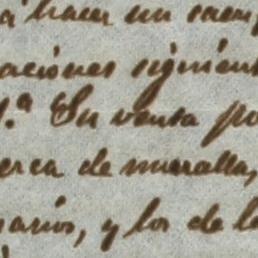 á hacer un
aciones siguient
1.ª Su venta po
erca de muralla,
arios, y los de l